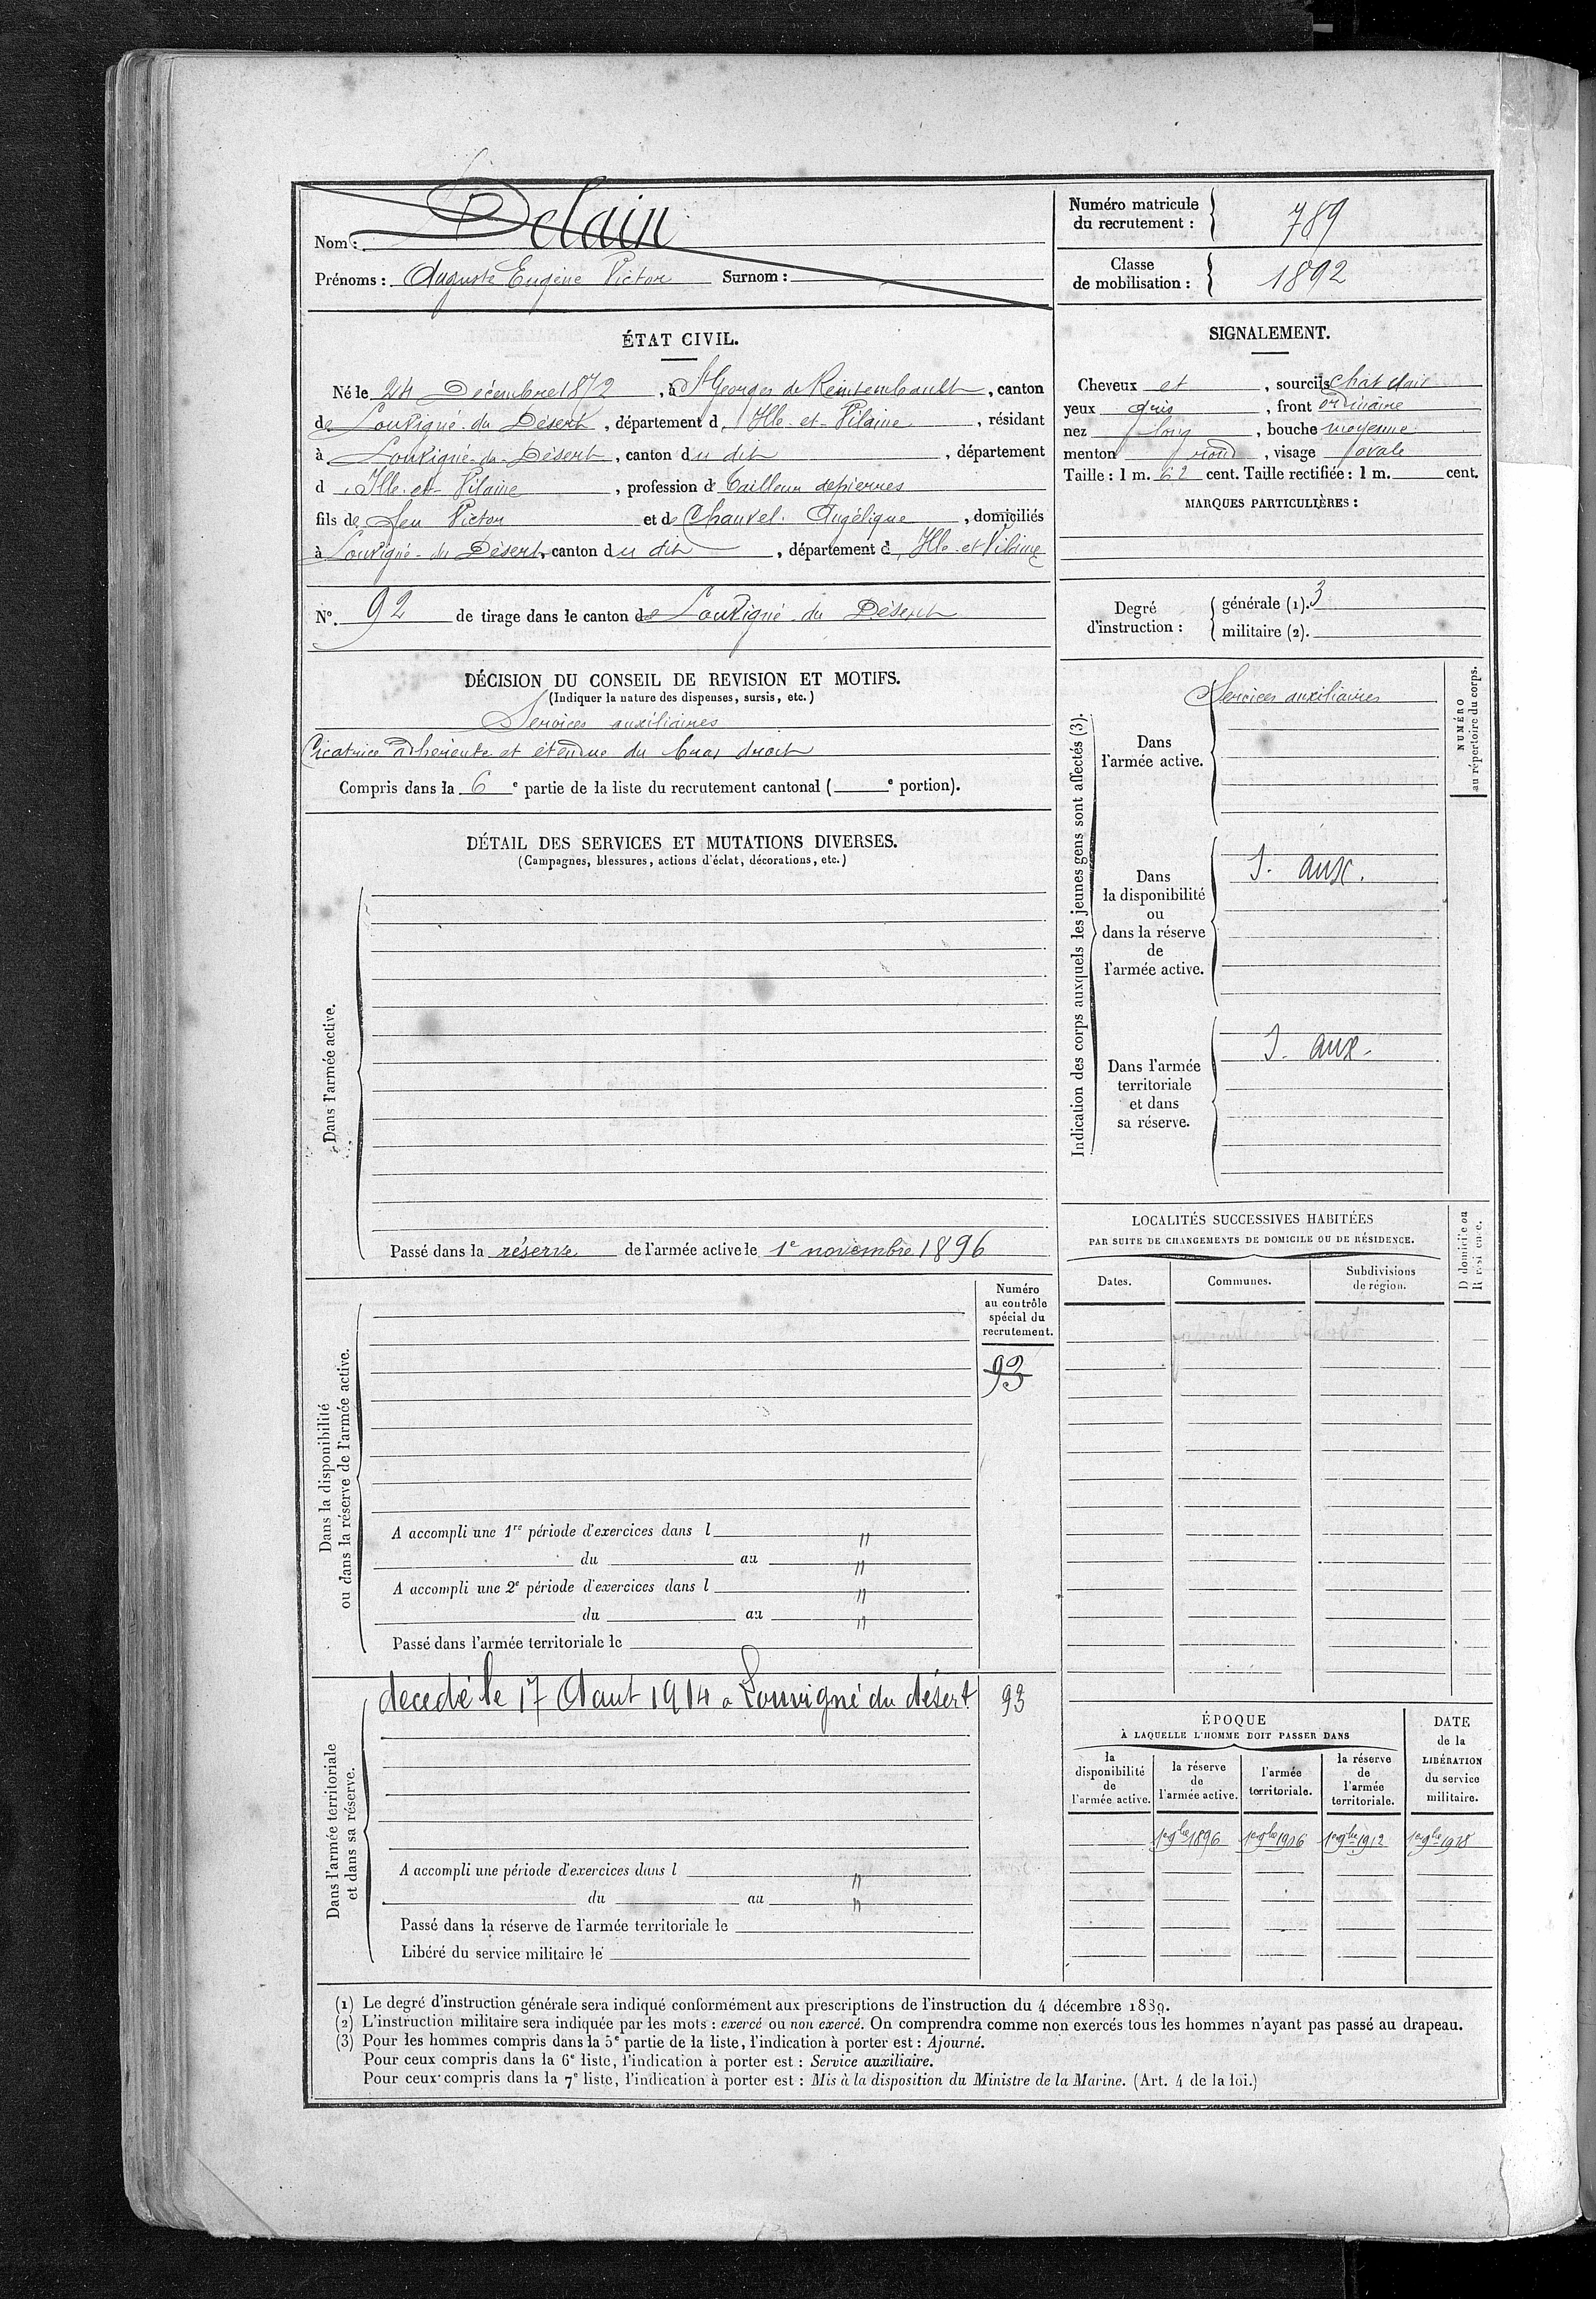 Nom : Delain
Prénoms : Auguste Eugène Victor Surnom :
Numéro matricule
du recrutement : 789
Classe
de mobilisation : 1892
ÉTAT CIVIL.
Né le 24 Décembre 1872, à St Georges de Reintembault, canton
de Louvigné-du-Désert, département d'Ille-et-Vilaine, résidant
à Louvigné-du-Désert, canton du dit, département
d'Ille-et-Vilaine, profession de tailleur de pierres
fils de feu Victor et de Chauvel Angélique, domiciliés
à Louvigné-du-Désert, canton du dit, département d'Ille-et-Vilaine
SIGNALEMENT.
Cheveux et, sourcils chat clair
yeux gris, front ordinaire
nez long, bouche moyenne
menton rond, visage ovale
Taille : 1 m. 62 cent. Taille rectifiée : 1 m. cent.
MARQUES PARTICULIÈRES :
N°. 92 de tirage dans le canton de Louvigné du Désert
Degré
d'instruction :
générale (1). 3
militaire (2).
DÉCISION DU CONSEIL DE REVISION ET MOTIFS.
(Indiquer la nature des dispenses, sursis, etc.)
Services auxiliaires
Cicatrice adhérente et étendue du bras droit
Compris dans la 6e partie de la liste du recrutement cantonal ( e portion).
DÉTAIL DES SERVICES ET MUTATIONS DIVERSES.
(Campagnes, blessures, actions d'éclat, décorations, etc.)
Dans l'armée active.
Passé dans la réserve de l'armée active le 1e novembre 1896
Indication des corps auxquels les jeunes gens sont affectés (3).
NUMÉRO
au répertoire du corps.
Dans
l'armée active.
Services auxiliaires
Dans
la disponibilité
ou
dans la réserve
de
l'armée active.
S. aux.
Dans l'armée
territoriale
et dans
sa réserve.
S. aux.
Dans la disponibilité
ou dans la réserve de l'armée active.
Numéro
au contrôle
spécial du
recrutement.
93
A accompli une 1re période d'exercices dans l "
du au "
A accompli une 2e période d'exercices dans l "
du au "
Passé dans l'armée territoriale le
LOCALITÉS SUCCESSIVES HABITÉES
PAR SUITE DE CHANGEMENTS DE DOMICILE OU DE RÉSIDENCE.
Dates. Communes. Subdivisions
de région.
D domicile ou
R résidence.
Dans l'armée territoriale
et dans sa réserve.
decedé le 17 Aout 1914 a Louvigné du désert 93
A accompli une période d'exercices dans l "
du au "
Passé dans la réserve de l'armée territoriale le
Libéré du service militaire le
ÉPOQUE
À LAQUELLE L'HOMME DOIT PASSER DANS
la
disponibilité
de
l'armée active.
la réserve
de
l'armée active.
l'armée
territoriale.
la réserve
de
l'armée
territoriale.
DATE
de la
LIBÉRATION
du service
militaire.
1er 9bre 1896 1er 9bre 1906 1er 9bre 1912 1er 9bre 1918
(1) Le degré d'instruction générale sera indiqué conformément aux prescriptions de l'instruction du 4 décembre 1889.
(2) L'instruction militaire sera indiquée par les mots : exercé ou non exercé. On comprendra comme non exercés tous les hommes n'ayant pas passé au drapeau.
(3) Pour les hommes compris dans la 5e partie de la liste, l'indication à porter est : Ajourné.
Pour ceux compris dans la 6e liste, l'indication à porter est : Service auxiliaire.
Pour ceux compris dans la 7e liste, l'indication à porter est : Mis à la disposition du Ministre de la Marine. (Art. 4 de la loi.)